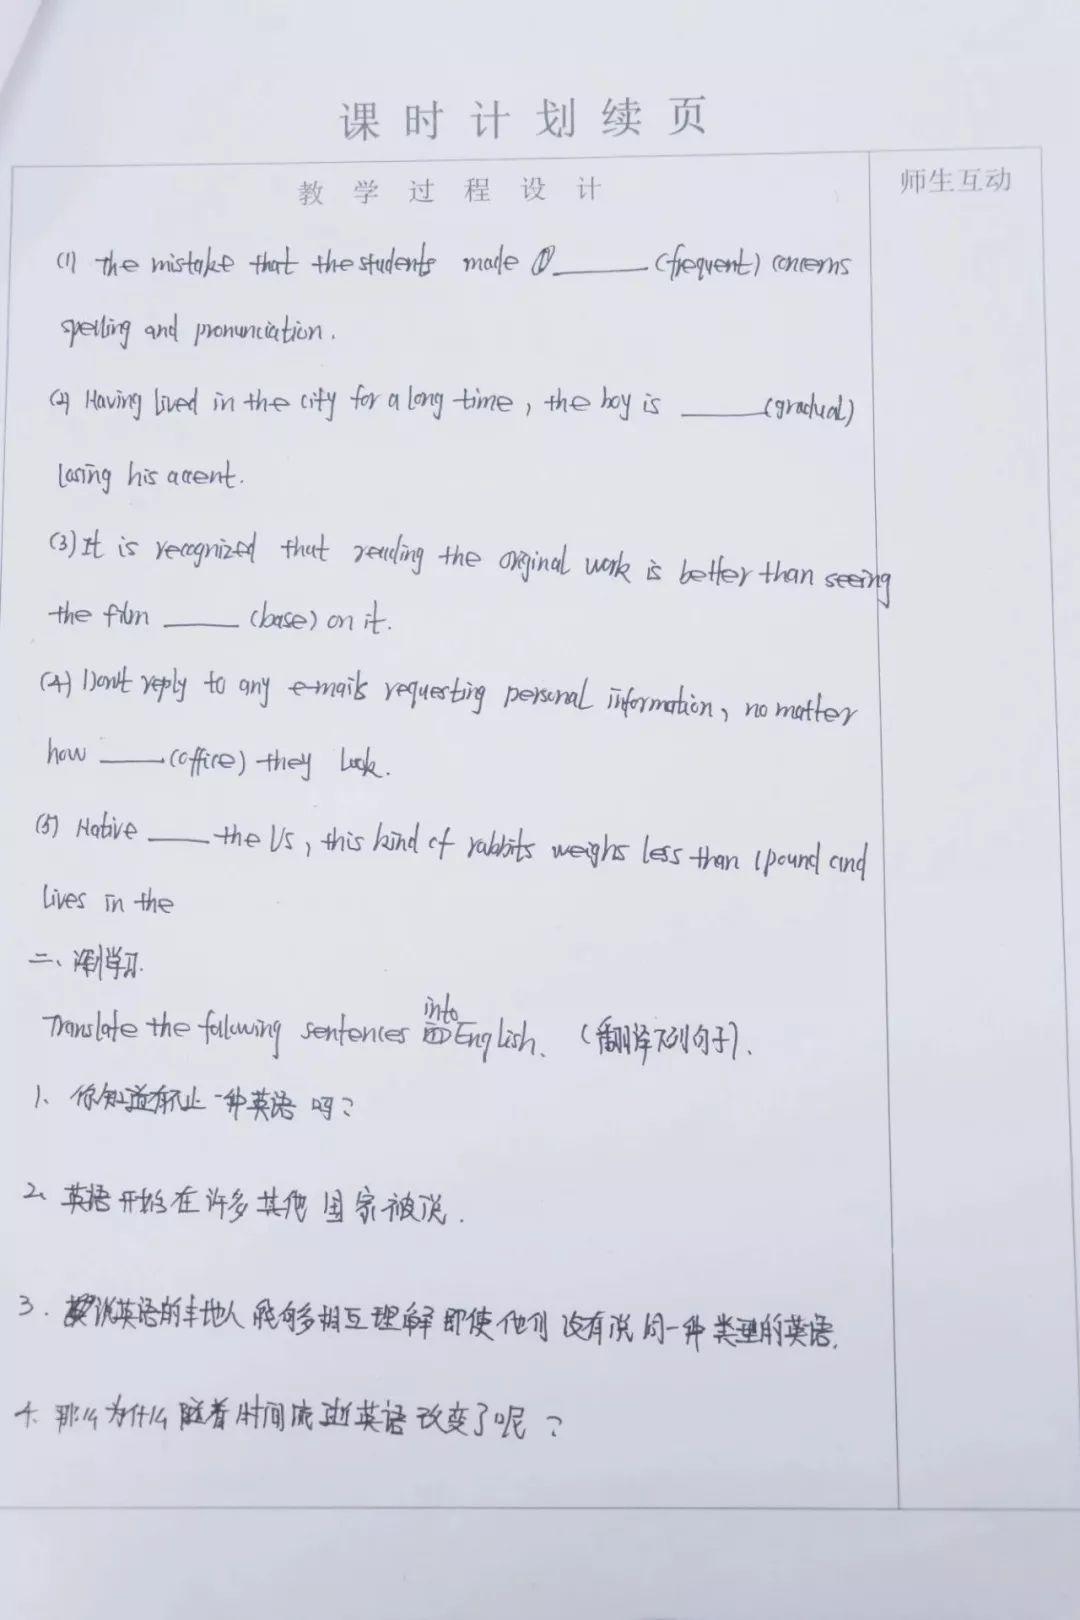 课时计划续页
教学过程设计
师生互动
(1) the mistake that the students made ______ (frequent) concerns
spelling and pronunciation.
(2) Having lived in the city for a long time, the boy is ______ (gradual)
losing his accent.
(3) It is recognized that reading the original work is better than seeing
the film ______ (base) on it.
(4) Don't reply to any e-mails requesting personal information, no matter
how ______ (office) they look.
(5) Native ______ the US, this kind of rabbits weighs less than 1 pound and
lives in the
二、深刻学习.
Translate the following sentences into English. (翻译下列句子).
1、你知道有不止一种英语吗?
2、英语开始在许多其他国家被说.
3. 说英语的本地人能够相互理解即使他们没有说同一种类型的英语.
4. 那么为什么随着时间流逝英语改变了呢?